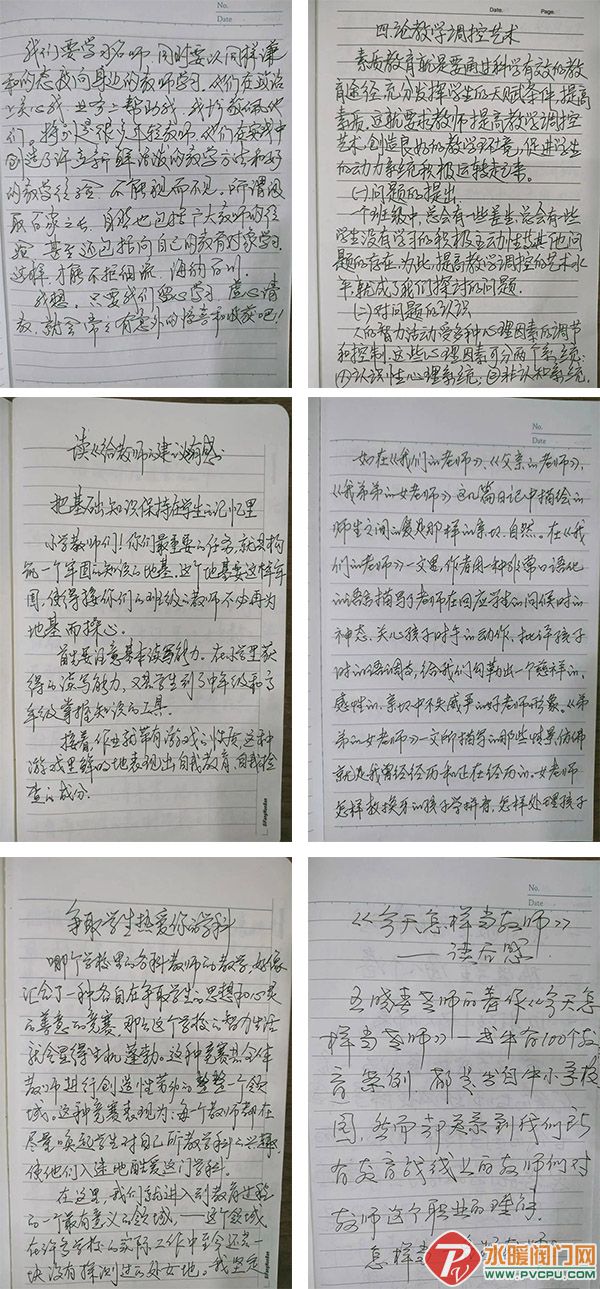 No.
Date
我们要学习名师,同时要以同样谦
和的态度向身边的教师学习。他们在政治
上关心我,业务上帮助我,我非常敬佩他
们。特别是很多年轻教师,他们在实践中
创造了许多新鲜活泼的教学方法和好
的教学经验,不能视而不见。所谓汲
取百家之长,自然也包括广大教师的经
验,甚至还包括向自己的教育对象学习
这样,才能不拒细流,海纳百川。
我想,只要我们留心学习,虚心请
教,就会常常有意外的惊喜和收获吧!
Date. Page.
四.论教学调控艺术
素质教育就是要用过科学有效的教
育途径,充分发挥学生的天赋条件,提高
素质。这就要求教师提高教学调控
艺术,创造良好的教学环境,促进学生
的动力系统积极运转起来。
(一)问题的提出。
一个班级中,总会有一些差生,总会有一些
学生没有学习的积极主动性或其他问
题的存在,为此,提高教学调控的艺术水
平,就成了我们探讨的问题。
(二)对问题的认识
人的智力活动受多种心理因素的调节
和控制,这些心理因素可分两个系统:
①认识性心理系统;②非认知系统,
读《给教师的建议》有感
把基础知识保持在学生的记忆里
小学教师们!你们最重要的任务,就是构
筑一个牢固的知识的地基。这个地基要这样牢
固,使得接你们的班级的教师不必再为
地基而操心。
首先要注意基本读写能力。在小学里获
得的读写能力,又是学生到了中年级和高
年级掌握知识的工具。
接着,作业就带有游戏的性质,这种
游戏里鲜明地表现出自我教育、自我检
查的成分.
No.
Date
如在《我们的老师》、《父亲的老师》,
《我弟弟的女老师》这几篇日记中描绘的
师生之间的爱是那样的亲切、自然。在《我
们的老师》一文里,作者用一种非常口语化
的语言描写了老师在回应学生的问候时的
神态,关心孩子时手的动作,批评孩子
时的语调,给我们勾勒出一个慈祥的,
感性的,亲切中不失威严的好老师形象。《弟
弟的女老师》一文所描写的那些情景,仿佛
就是我曾经经历和正在经历的,女老师
怎样教换牙的孩子学拼音,怎样处理孩子
争取学生热爱你的学科
哪个学校里的各科教师的教学,好像
汇合了一种各自在争取学生的思想和心灵
的善意的竞赛,那么这个学校的智力生活
就会显得生机蓬勃。这种竞赛是全体
教师进行创造性劳动的整整一个领
域。这种竞赛表现为:每个教师都在
尽量唤起学生对自己所教学科的兴趣,
使他们入迷地酷爱这门学科。
在这里,我们就进入到教育过程
的一个最有意义的领域,——这个领域
在许多学校的实际工作中至今还是一
块没有探测过的处女地。我坚定
No.
Date
《今天怎样当教师》
——读后感
王晓春老师的著作《今天怎
样当老师》一书中有100个教
育案例,都是发自中小学校
园,然而却关系到我们所
有教育战线上的教师们对
教师这个职业的理解
怎样
水暖阀门网
WWW.PVCPU.COM